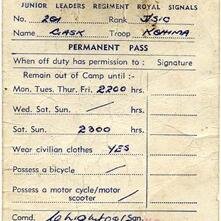 JUNIOR LEADERS REGIMENT ROYAL SIGNALS
No. 261 Rank J/SIG
Name CASK Troop KOHIMA
PERMANENT PASS
When off duty has permission to: Signature
Remain out of Camp until:-
Mon. Tues. Thur. Fri. 2200 hrs.
Wed. Sat. Sun. / hrs.
Sat. Sun. 2300 hrs.
Wear civilian clothes YES
Possess a bicycle /
Possess a motor cycle/motor
scooter /
Comd. Sqn.